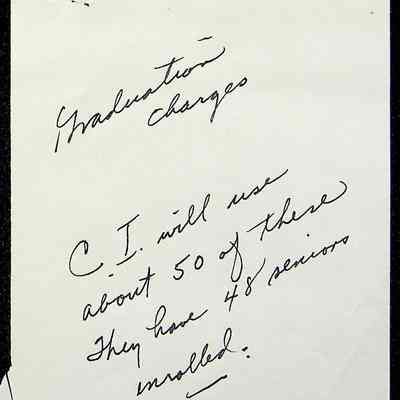 Graduation
charges
C. I. will use
about 50 of these
They have 48 seniors
inrolled.